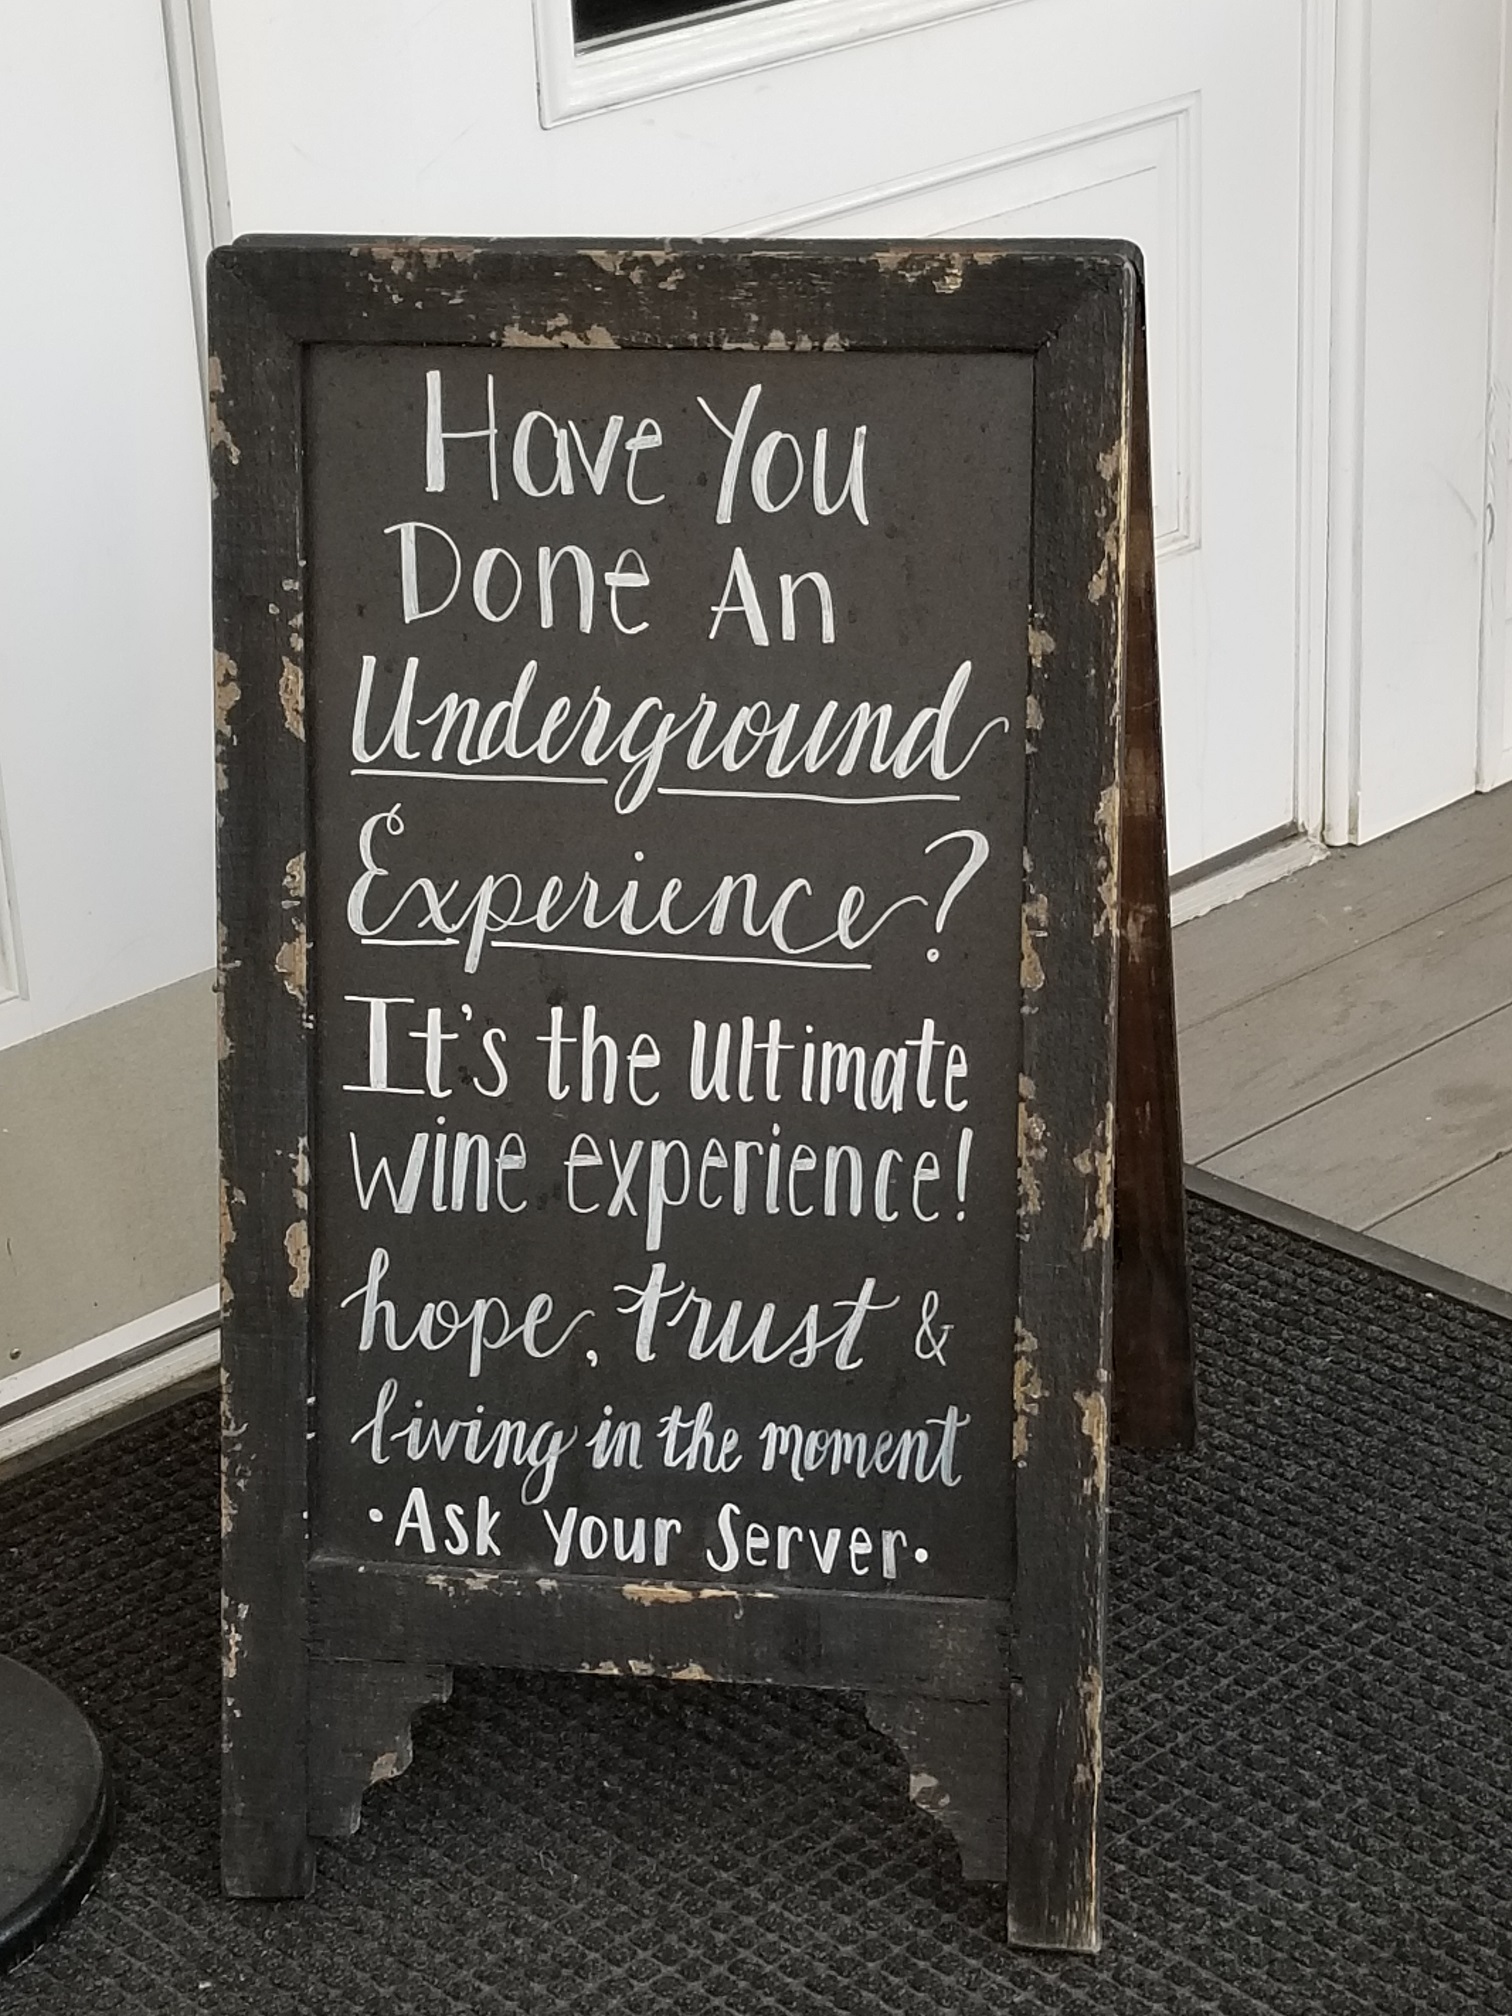 Have You
Done An
Underground
Experience?
It's the ultimate
wine experience!
hope, trust &
living in the moment
·Ask your Server·